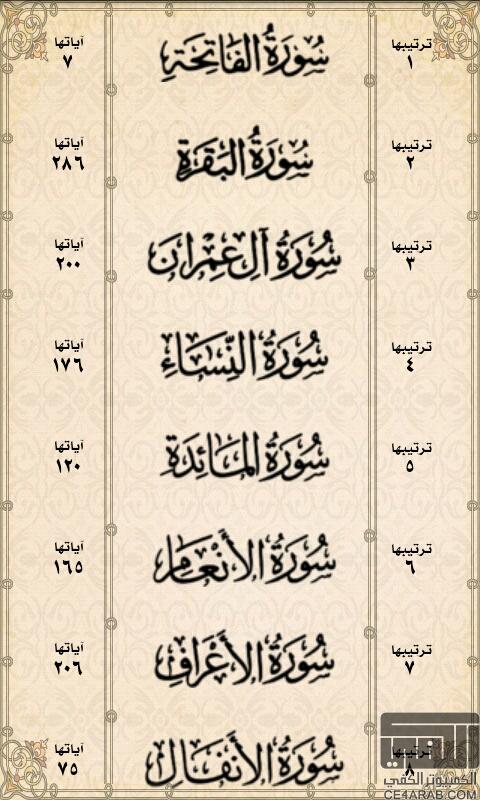 ترتيبها
١
سُورَةُ الفَاتِحَةِ
آياتها
٧
ترتيبها
٢
سُورَةُ البَقَرَةِ
آياتها
٢٨٦
ترتيبها
٣
سُورَةُ آلِ عِمْرَانَ
آياتها
٢٠٠
ترتيبها
٤
سُورَةُ النِّسَاءِ
آياتها
١٧٦
ترتيبها
٥
سُورَةُ المَائِدَةِ
آياتها
١٢٠
ترتيبها
٦
سُورَةُ الأَنْعَامِ
آياتها
١٦٥
ترتيبها
٧
سُورَةُ الأَعْرَافِ
آياتها
٢٠٦
ترتيبها
٨
سُورَةُ الأَنْفَالِ
آياتها
٧٥
الكمبيوتر الكفي
CE4ARAB.COM